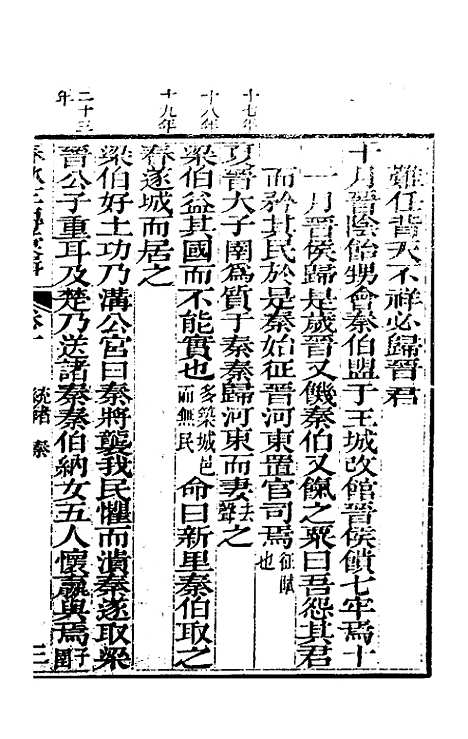 難任背天不祥必歸晉君
十月晉陰飴甥會秦伯盟于王城改館晉侯饋七牢焉十
一月晉侯歸是歲晉又饑秦伯又餼之粟曰吾怨其君
而矜其民於是秦始征晉河東置官司焉征賦也
十七年
夏晉大子圉為質于秦秦歸河東而妻去聲之
十八年
梁伯益其國而不能實也多築城邑而無民命曰新里秦伯取之
十九年
春遂城而居之
梁伯好土功乃溝公宮曰秦將襲我民懼而潰秦遂取梁
二十三年
晉公子重耳及楚乃送諸秦秦伯納女五人懷嬴與焉子圉
秦